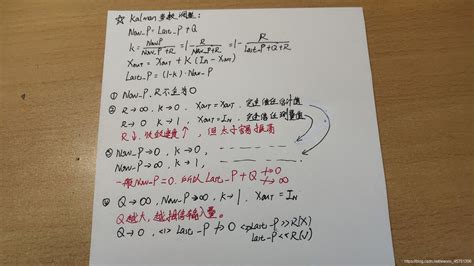 ☆ Kalman 参数调整:
Now_P = Last_P + Q
K = Now_P / (Now_P + R) = 1 - R / (Now_P + R) = 1 - R / (Last_P + Q + R)
Xout = Xout + K (In - Xout)
Last_P = (1-k) · Now_P
① Now_P、R不全为0
② R→∞, K→0, Xout = Xout, 完全信任估计值
R→0 K→1, Xout = In, 完全信任测量值
R↓, 收敛速度↑, 但太小容易振荡
③ Now_P→0, K→0,
Now_P→∞, K→1,
一般Now_P≠0, 所以 Last_P + Q ↛ 0
④ Q→∞, Now_P→∞, K→1, Xout = In
Q越大, 越相信输入量。
Q→0, <1> Last_P ↛ 0 Last_P >> R(X)
Last_P << R(√)
https://blog.csdn.net/weixin_45751396